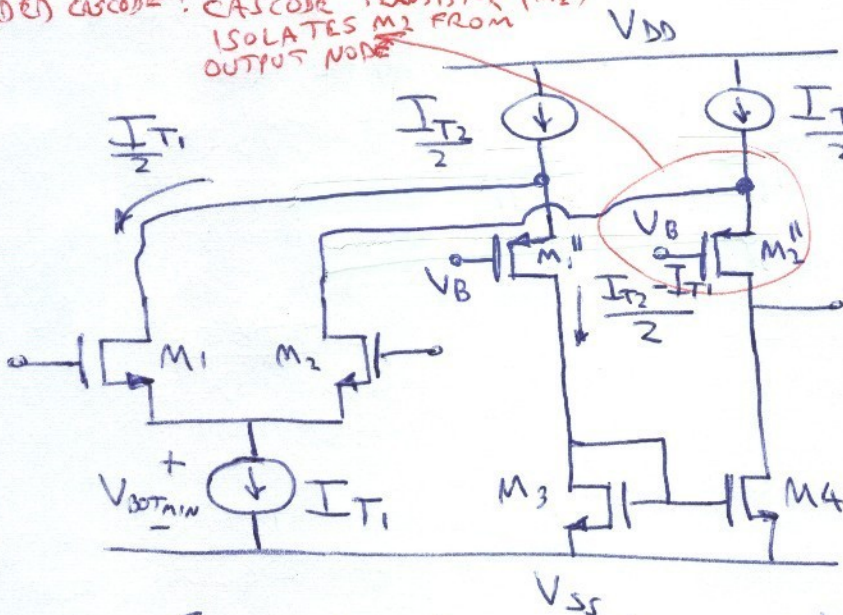 CASCODE : CASCODE
ISOLATES M2 FROM
OUTPUT NODE
VDD
IT1/2
IT2/2
VB
M1"
VB
M2"
IT2-IT1/2
M1
M2
+
VBOTMIN
-
IT1
M3
M4
VSS